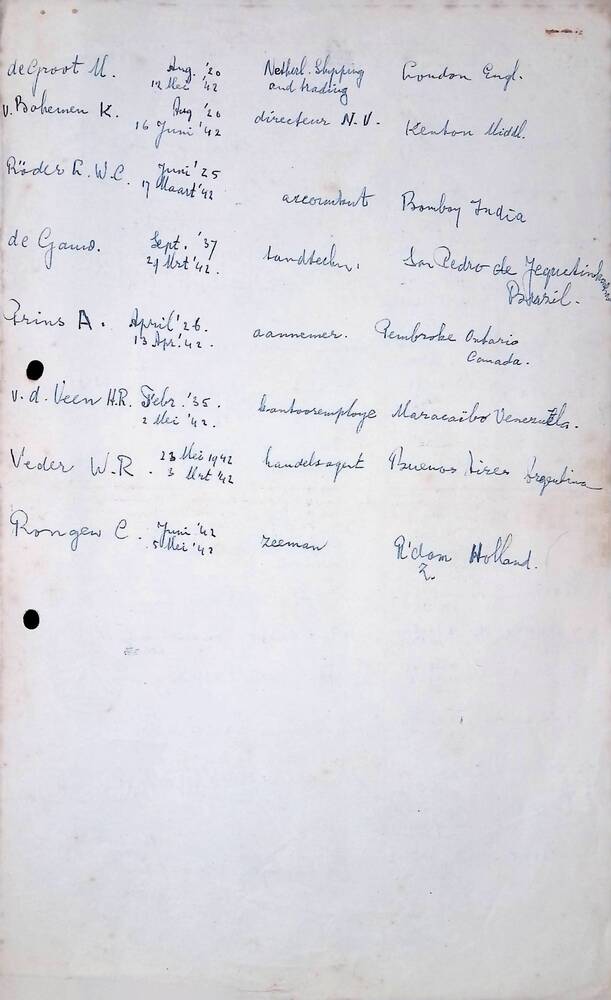 de Groot M. Aug. '20 Netherl. Shipping London Engl.
12 Mei '42 and trading
v. Bohemen K. Aug '20 directeur N.V. Kenton Middl.
16 Juni '42
Röder R.W.C. Juni '25
17 Maart '42 accountant Bombay India
de Gauw. Sept. '37 landtechn. San Pedro de
21 Mrt '42. Brazil.
Prins A. April '26. aannemer. Pembroke Ontario
13 Apr. '42. Canada.
v. d. Veen H.R. Febr. '35. kantooremploye Maracaibo Venezuela.
2 Mei '42.
Veder W.R. 23 Mei 1942 handelsagent Buenos Aires Argentina
3 Mrt '42
Rongen C. Juni '42 zeeman R'dam Holland.
5 Mei '42 Z.